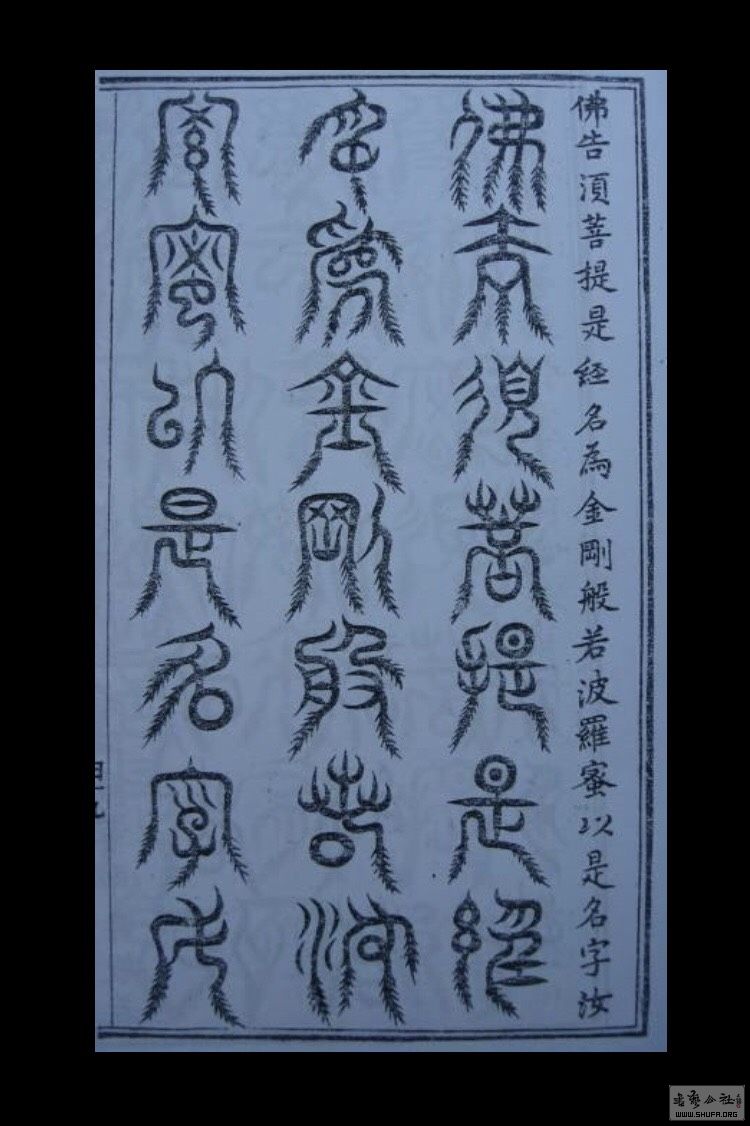 佛告湏菩提是經名為金剛般若波羅蜜以是名字汝
佛告須菩提是經
名為金剛般若波
羅蜜以是名字汝
书艺公社
WWW.SHUFA.ORG